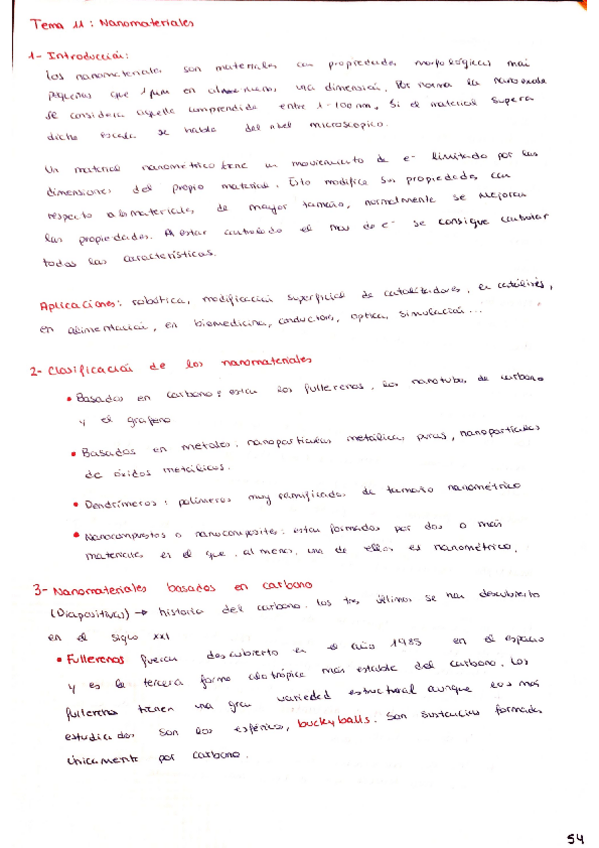 Tema 11: Nanomateriales
1- Introducción:
Los nanomateriales son materiales con propiedades morfológicas más
pequeñas que 1 µm en al menos, una dimensión. Por norma la nanoescala
se considera aquella comprendida entre 1-100 nm. Si el material supera
dicha escala se habla del nivel microscópico.
Un material nanométrico tiene un movimiento de e- limitado por las
dimensiones del propio material. Esto modifica sus propiedades con
respecto a los materiales de mayor tamaño, normalmente se mejoran
las propiedades. Al estar controlado el mov de e- se consigue controlar
todas las características.
Aplicaciones: robótica, modificación superficial de catalizadores, en catálisis,
en alimentación, en biomedicina, conductors, optica, simulación...
2- Clasificación de los nanomateriales
• Basados en carbono: están los fullerenos, los nanotubos de carbono
y el grafeno
• Basados en metales. nanopartículas metálicas puras, nanopartículas
de óxidos metálicos.
• Dendrímeros: polímeros muy ramificados de tamaño nanométrico
• Nanocompuestos o nanocomposites: están formados por dos o más
materiales en el que, al menos, uno de ellos es nanométrico.
3- Nanomateriales basados en carbono
(Diapositivas) → historia del carbono. los tres últimos se han descubierto
en el siglo XXI
• Fullerenos fueron descubierto en el año 1985 en el espacio
y es la tercera forma alotrópica más estable del carbono. Los
fullerenos tienen una gran variedad estructural aunque los más
estudiados son los esférico, buckyballs. Son sustancias formadas
únicamente por carbono.
54